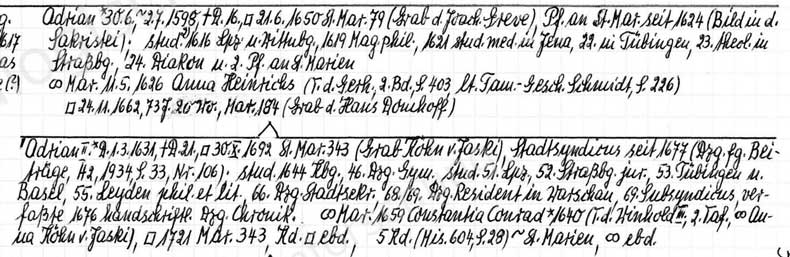 g. Adrian *30.6, ~2.7.1598, +D.16, □ 21.6.1650 St. Mar. 79 (Grab d. Joach. Greve), Pf. an St. Mar. seit 1624 (Bild in d.
617 Sakristei). stud. 1616 Lpz u. Wittbg, 1619 Mag. phil., 1621 stud. med. in Jena, 22. in Tübingen, 23. theol. in
as Straßbg, 24. Diakon u. 2. Pf. an St. Marien
e(?) ∞ Mar. 11.5.1626 Anna Heinrichs (T. d. Gerh., 2. Bd., S. 403, lt. Fam.-Gesch. Schmidt, S. 226)
□ 24.11.1662, 73J. 20 Wo., Mar. 184 (Grab d. Hans Domkoff)
Adrian II. *D. 1.3.1631, +D. 21., □ 30.X.1692 St. Mar. 343 (Grab Köhn v. Jaski), Stadtsyndicus seit 1677 (Dzg. fg. Bei-
träge, H2, 1934, S. 33, Nr. 106). stud. 1644 Kbg, 46. Dzg. Gym. stud. 51. Lpz, 52. Straßbg. jur., 53. Tübingen u.
Basel, 55. Leyden phil. et lit., 66. Dzg. Stadtsekr., 68/69. Dzg. Resident in Warschau, 69. Subsyndicus, ver-
faßte 1676 handschriftl. Dzg. Chronik. ∞ Mar. 1659 Constantia Conrad *1640 (T. d. Winhold III, 2. Taf., ∞ An-
na Köhn v. Jaski), □ 1721 Mar. 343, Kd. □ ebd. 5 Kd. (His. 604, S. 28) ~ St. Marien, ∞ ebd.